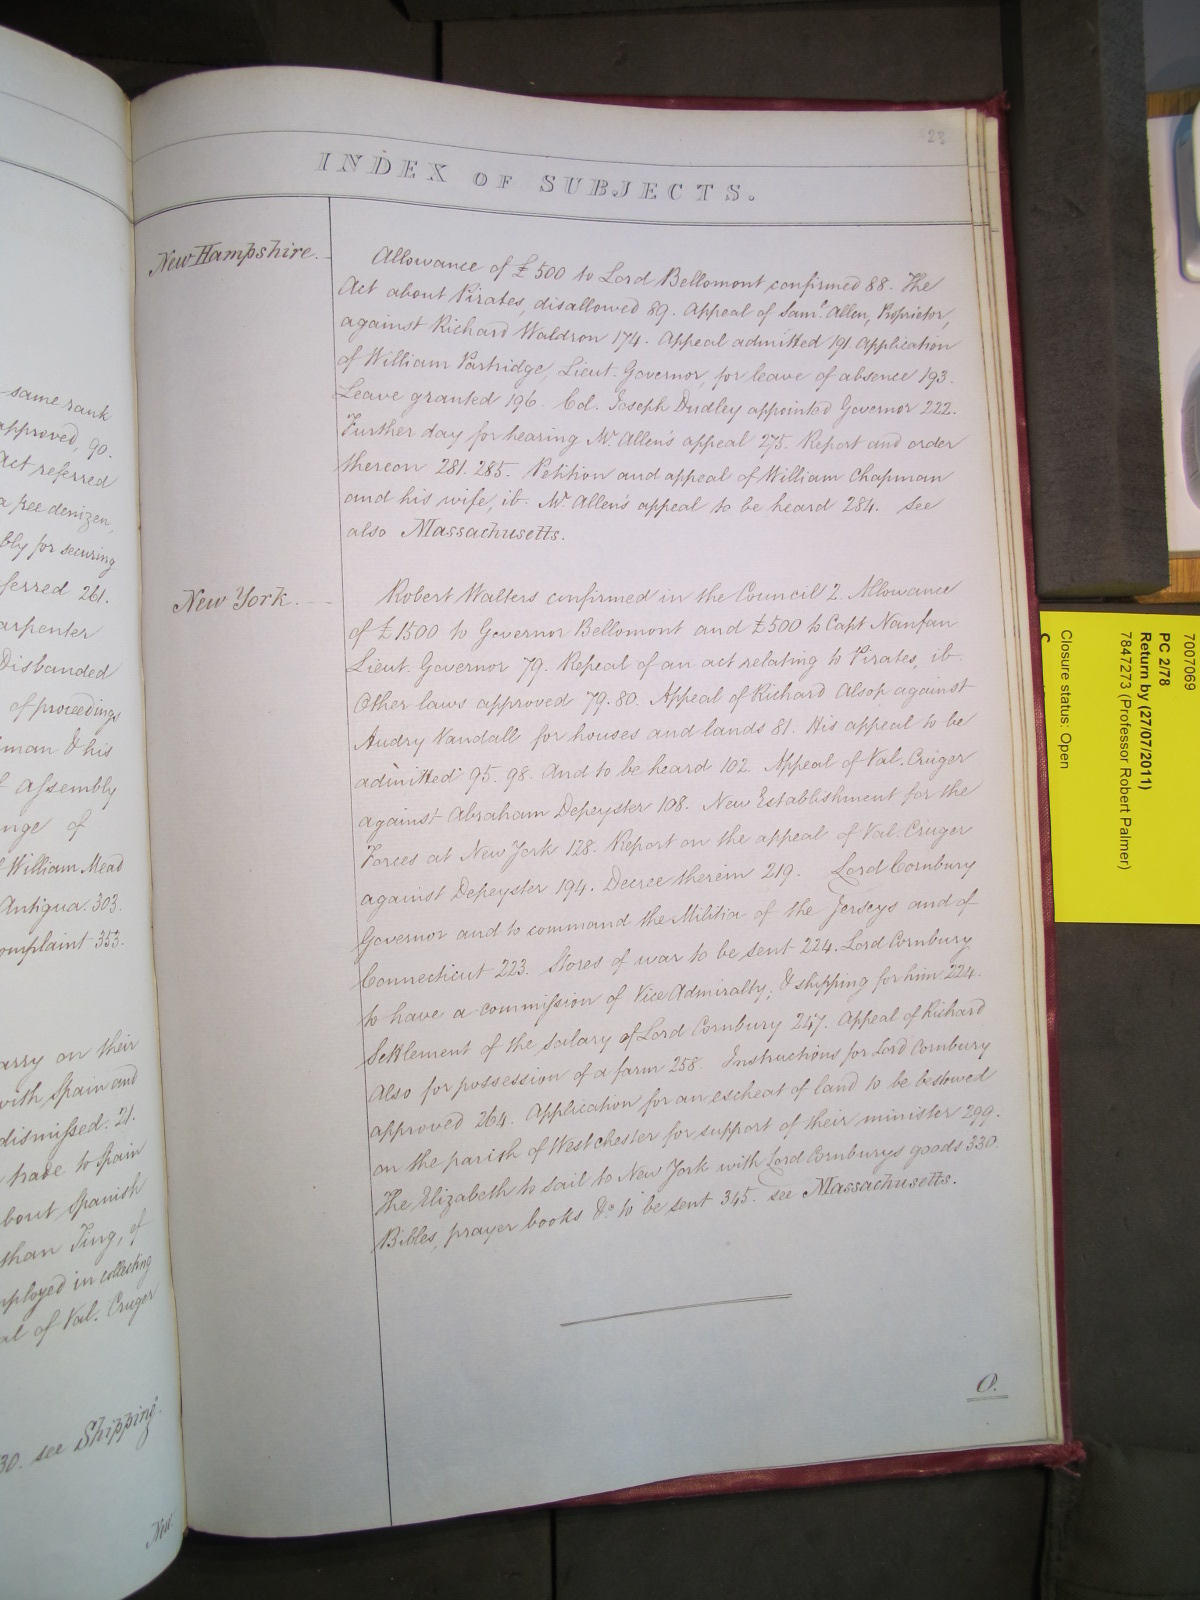 same rank
approved, 90.
Act referred
a free denizen,
bly for securing
ferred 261.
arpenter
Disbanded
of proceedings
man & his
assembly
nge of
William Mead
Antigua. 303.
omplaint 353.
arry on their
with Spain and
dismissed. 21.
trade to Spain
bout Spanish
than Ting, of
mployed in collecting
al of Val. Cruger
30. see Shipping.
New
23
INDEX OF SUBJECTS.
New Hampshire.
Allowance of £500 to Lord Bellomont confirmed 88. The
Act about Pirates, disallowed 89. Appeal of Saml. Allen, Proprietor,
against Richard Waldron 174. Appeal admitted 191. Application
of William Partridge, Lieut. Governor, for leave of absence 193.
Leave granted 196. Col. Joseph Dudley appointed Governor 222.
Further day for hearing Mr. Allen's appeal 275. Report and order
thereon 281. 285. Petition and appeal of William Chapman
and his wife, ib. Mr. Allen's appeal to be heard 284. see
also Massachusetts.
New York.
Robert Walters confirmed in the Council 2. Allowance
of £1500 to Governor Bellomont and £500 to Capt Nanfan
Lieut. Governor 79. Repeal of an act relating to Pirates, ib.
Other laws approved 79. 80. Appeal of Richard Alsop against
Audry Vandall for houses and lands 81. His appeal to be
admitted 95. 98. And to be heard 102. Appeal of Val. Cruger
against Abraham Depeyster 108. New Establishment for the
Forces at New York 128. Report on the appeal of Val. Cruger
against Depeyster 194. Decree therein 219. Lord Cornbury
Governor and to command the Militia of the Jerseys and of
Connecticut 223. Stores of war to be sent 224. Lord Cornbury
to have a commission of Vice Admiralty; & shipping for him 224.
Settlement of the salary of Lord Cornbury 247. Appeal of Richard
Also for possession of a farm 258. Instructions for Lord Cornbury
approved 264. Application for an escheat of land to be bestowed
on the parish of Westchester for support of their minister 299.
The Elizabeth to sail to New York with Lord Cornburys goods 330.
Bibles, prayer books &c to be sent 345. see Massachusetts.
O.
7007069
PC 2/78
Return by (27/07/2011)
7847273 (Professor Robert Palmer)
Closure status: Open